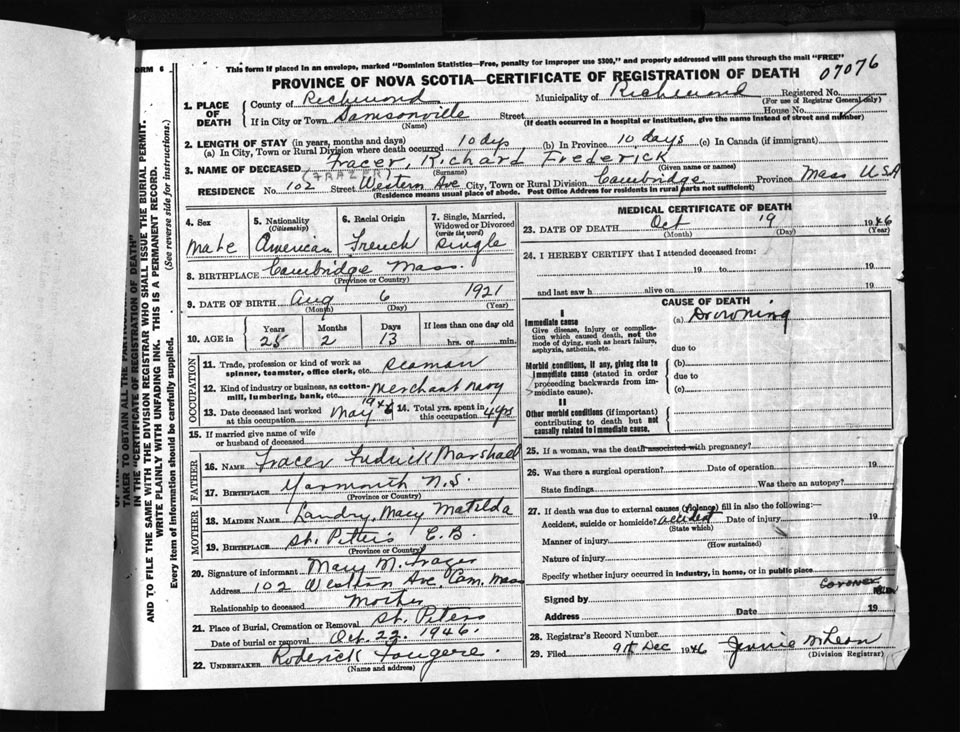 FORM 6
This form if placed in an envelope, marked "Dominion Statistics—Free, penalty for improper use $300," and properly addressed will pass through the mail "FREE"
PROVINCE OF NOVA SCOTIA—CERTIFICATE OF REGISTRATION OF DEATH 07076
1. PLACE OF DEATH
County of Richmond Municipality of Richmond Registered No.
(For use of Registrar General only)
If in City or Town Samsonville Street House No.
(Name) (If death occurred in a hospital or institution, give the name instead of street and number)
2. LENGTH OF STAY (in years, months and days)
(a) In City, Town or Rural Division where death occurred 10 dys (b) In Province 10 days (c) In Canada (if immigrant)
3. NAME OF DECEASED Fracer, Richard Frederick
(FRAZER) (Surname) (Given name or names)
RESIDENCE No. 102 Street Western Ave City, Town or Rural Division Cambridge Province Mass USA
(Residence means usual place of abode. Post Office Address for residents in rural parts not sufficient)
4. Sex
Male
5. Nationality
(Citizenship)
American
6. Racial Origin
French
7. Single, Married, Widowed or Divorced
(write the word)
Single
8. BIRTHPLACE Cambridge Mass.
(Province or Country)
9. DATE OF BIRTH Aug 6 1921
(Month) (Day) (Year)
10. AGE in
Years Months Days If less than one day old
25 2 13 hrs. or min.
OCCUPATION
11. Trade, profession or kind of work as spinner, teamster, office clerk, etc. Seaman
12. Kind of industry or business, as cotton-mill, lumbering, bank, etc. Merchant navy
13. Date deceased last worked at this occupation May 1946
14. Total yrs. spent in this occupation 4 yrs
15. If married give name of wife or husband of deceased
FATHER
16. NAME Fracer Fredrick Marshall
17. BIRTHPLACE Yarmouth N.S.
(Province or Country)
MOTHER
18. MAIDEN NAME Landry, Mary Matilda
19. BIRTHPLACE St. Peters C.B.
(Province or Country)
20. Signature of informant Mary M. Frazer
Address 102 Western Ave. Cam. Mass
Relationship to deceased Mother
21. Place of Burial, Cremation or Removal St. Peters
Date of burial or removal Oct. 22. 1946.
22. UNDERTAKER Roderick Fougere.
(Name and address)
MEDICAL CERTIFICATE OF DEATH
23. DATE OF DEATH Oct 19 1946
(Month) (Day) (Year)
24. I HEREBY CERTIFY that I attended deceased from:
19 to 19
and last saw h alive on 19
CAUSE OF DEATH
I
Immediate cause (a) Drowning
Give disease, injury or complication which caused death, not the mode of dying, such as heart failure, asphyxia, asthenia, etc.
due to
Morbid conditions, if any, giving rise to immediate cause (stated in order proceeding backwards from immediate cause).
(b)
due to
(c)
II
Other morbid conditions (if important) contributing to death but not causally related to immediate cause.
25. If a woman, was the death associated with pregnancy?
26. Was there a surgical operation? Date of operation 19
State findings Was there an autopsy?
27. If death was due to external causes (violence) fill in also the following:—
Accident, suicide or homicide? accident Date of injury 19
(State which)
Manner of injury
(How sustained)
Nature of injury
Specify whether injury occurred in industry, in home, or in public place
Coroner
Signed by
Address Date 19
28. Registrar's Record Number
29. Filed 9th Dec 1946 Jennie McLean
(Division Registrar)
TAKER TO OBTAIN ALL THE
IN THE "CERTIFICATE OF REGISTRATION OF DEATH"
AND TO FILE THE SAME WITH THE DIVISION REGISTRAR WHO SHALL ISSUE THE BURIAL PERMIT.
WRITE PLAINLY WITH UNFADING INK. THIS IS A PERMANENT RECORD.
Every item of information should be carefully supplied. (See reverse side for instructions.)